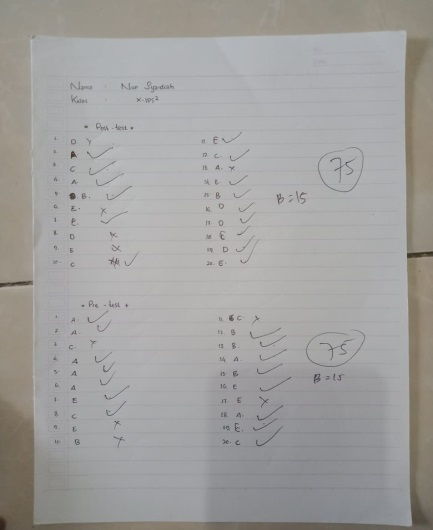 Nama : Nur Syardiah
Kelas : X-IPS²
* Post-test *
1. D x
2. A ✓
3. C ✓
4. A ✓
5. B. ✓
6. E. x
7. E. ✓
8. D x
9. E x
10. C ✓
11. E ✓
12. C. ✓
13. A. x
14. E. ✓
15. B ✓
16. D ✓
17. D ✓
18. E ✓
19. D ✓
20. E. ✓
75
B = 15
* Pre-test *
1. A. ✓
2. A. ✓
3. C x
4. A ✓
5. A ✓
6. A ✓
7. E ✓
8. C ✓
9. E x
10. B x
11. C. x
12. B ✓
13. B. ✓
14. A. ✓
15. B ✓
16. E ✓
17. E x
18. A. ✓
19. E. ✓
20. C ✓
75
B = 15